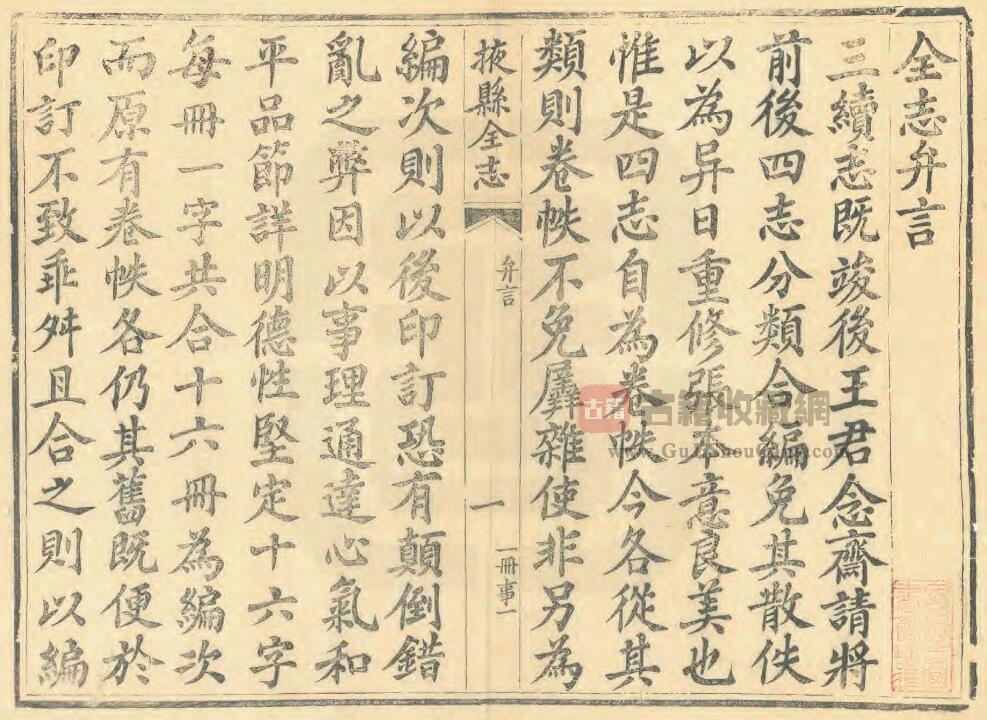 全志弁言
三續志既竣後王君念齋請將
前後四志分類合編免其散佚
以為异日重修張本意良美也
惟是四志自為卷帙今各從其
類則卷帙不免羼雜使非另為
掖縣全志
弁言
一
一冊事一
編次則以後印訂恐有顛倒錯
亂之弊因以事理通達心氣和
平品節詳明德性堅定十六字
每冊一字共合十六冊為編次
而原有卷帙各仍其舊既便於
印訂不致乖舛且合之則以編
古籍
古籍收藏網